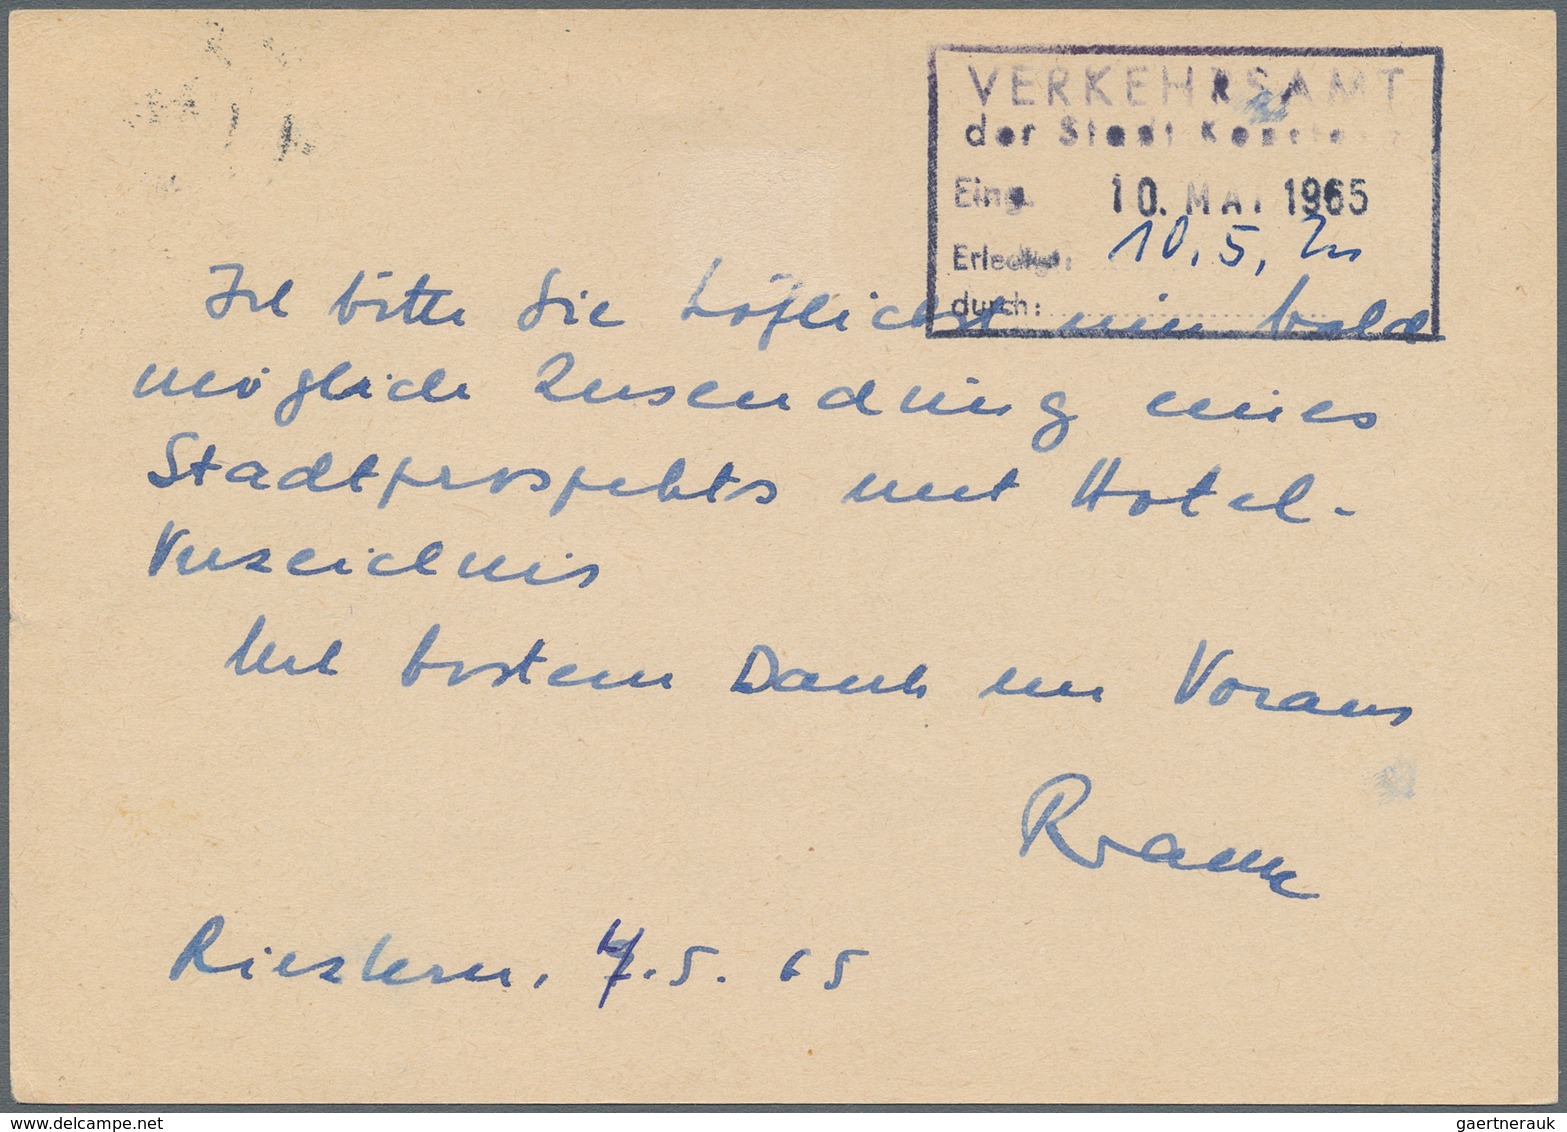 VERKEHRSAMT
der Stadt Konstanz
Eing. 10. MAI 1965
Erledigt: 10.5.
durch:
Ich bitte Sie höflichst um bald
mögliche Zusendung eines
Stadtprospekts mit Hotel-
Verzeichnis
Mit bestem Dank im Voraus
7.5.65
gaertnerauk / delcampe.net